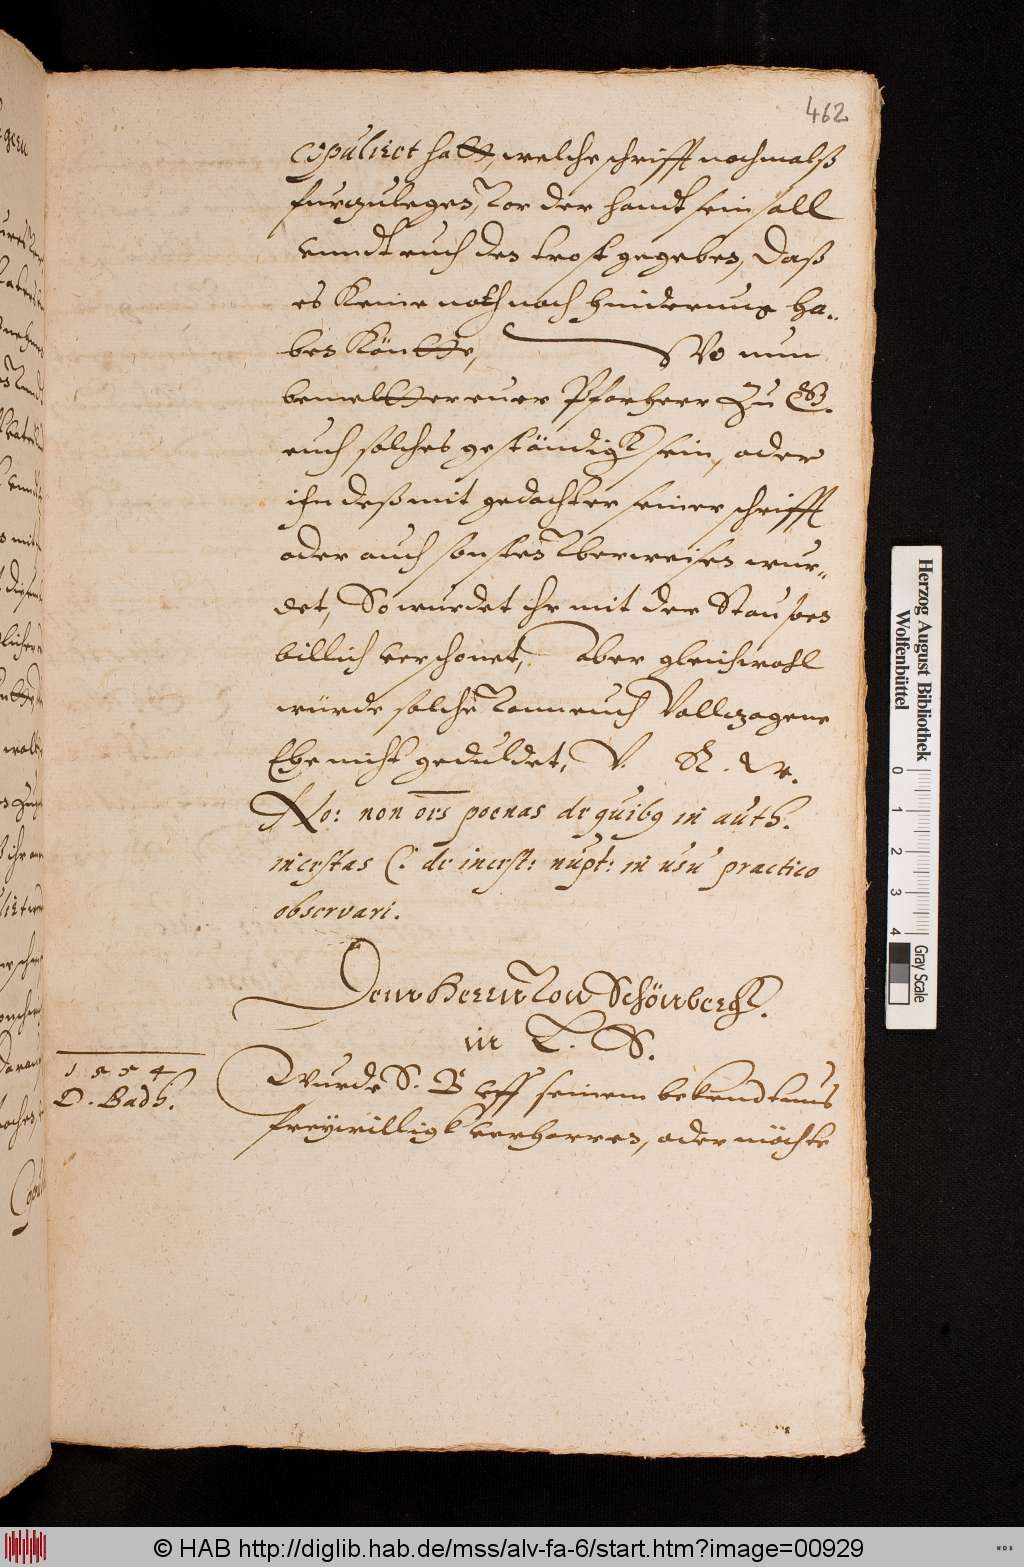 462
copuliret hatt, welche schrifft nochmalß
furzulegen, vor der handt sein soll
vnndt euch den trost gegeben, Daß
es keine noth noch hinderung ha-
ben köntte, Wo nun
bemeltter euer Pfarherr zu G.
euch solches geständigk sein, oder
ihn deß mit gedachter seiner schrifft
oder auch sonsten vberweisen wur-
det, So wurdet ihr mit der Staupen
billich verschonet, Aber gleichwohl
würde solche von euch Vollzogene
Ehe nicht geduldet, V. R. W.
No: non oēs poenas de quibq in auth.
incestas C. de incest: nupt: in usu practico
observari.
Denn Herrn von Schönbergk.
in L. S.
1554
D. Badh.
Wurde S. B vff seinem bekendtnus
freywilligk verharren, oder möchte
Herzog August Bibliothek
Wolfenbüttel
0 1 2 3 4
Gray Scale
© HAB http://diglib.hab.de/mss/alv-fa-6/start.htm?image=00929